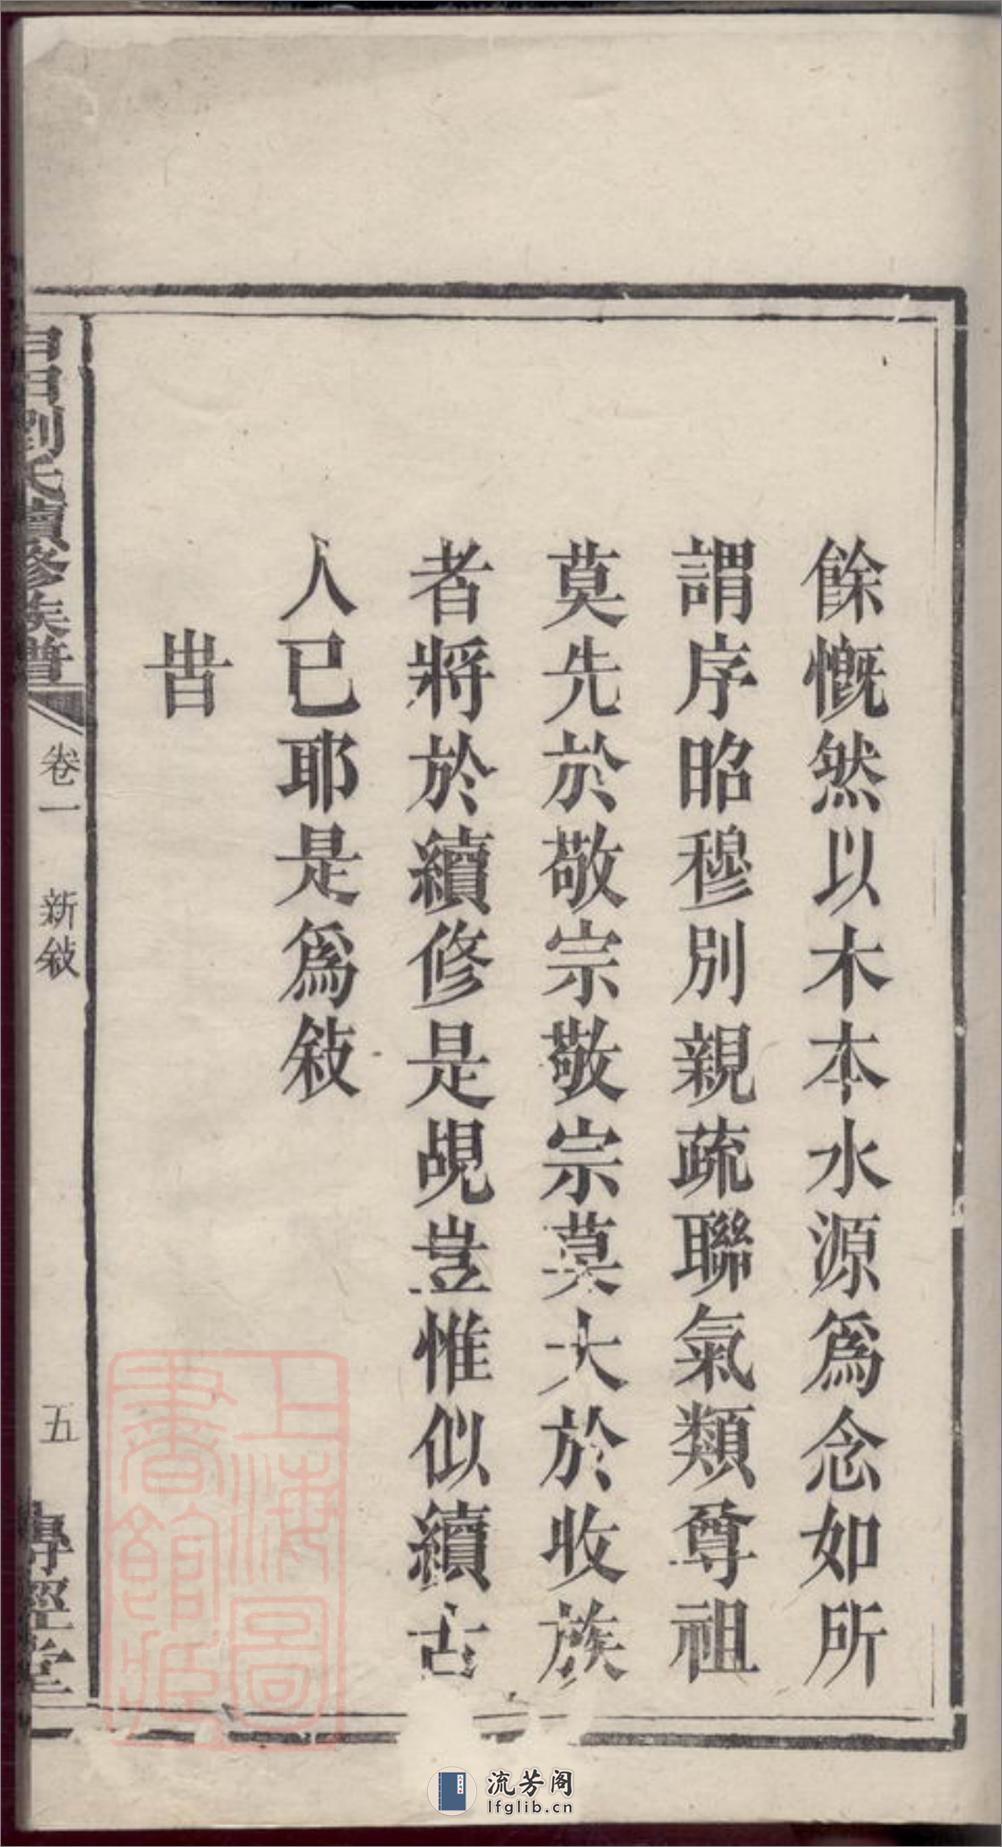 餘慨然以木本水源爲念如所
謂序昭穆別親疏聯氣類尊祖
莫先於敬宗敬宗莫大於收族
者將於續修是覘豈惟似續古
人已耶是爲敍
旹
劉氏續修族譜
卷一
新敍
五
傳經堂
上海圖
書館藏
流芳阁
lfglib.cn